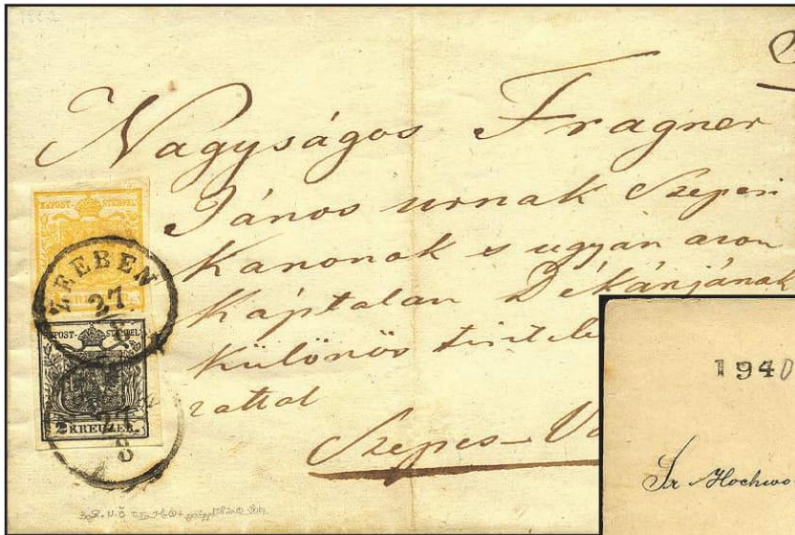 Nagyságos Fragner
János urnak Szepesi
Kanonok s ugyan azon
Káptalan Dékánjának
különös tisztele
zattal
Szepes-Vá
KK POST-STEMPEL
KREUZER
ZEEBEN
27
8
KK POST-STEMPEL
2 KREUZER
27
8
1940
Sr Hochwo